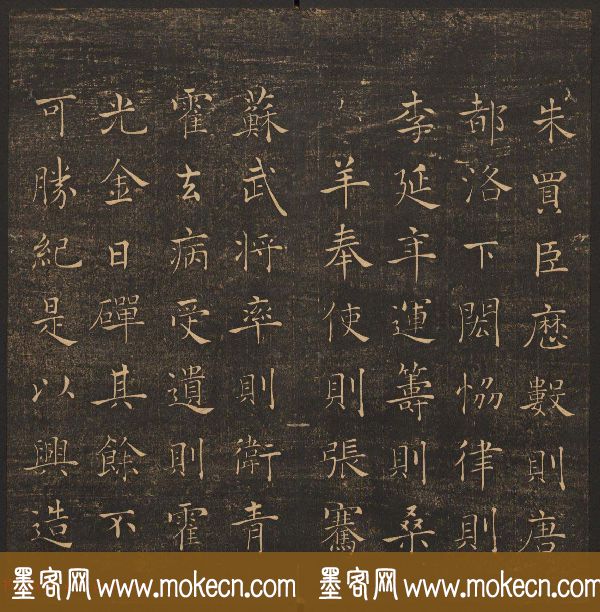 朱買臣厯數則唐
都洛下閎恊律則
李延年運籌則桑
羊奉使則張騫
蘇武将率則衛青
霍去病受遺則霍
光金日磾其餘不
可勝紀是以興造
墨客网 www.mokecn.com 墨客网 www.mokecn.com